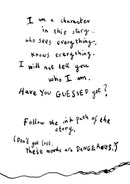 I am a character
in this story...
who sees everything,
knows everything.
I will not tell you
who I am.
HAVE YOU GUESSED yet?
Follow the ink path of the
story.
(Don't get lost,
these words are DANGEROUS.)